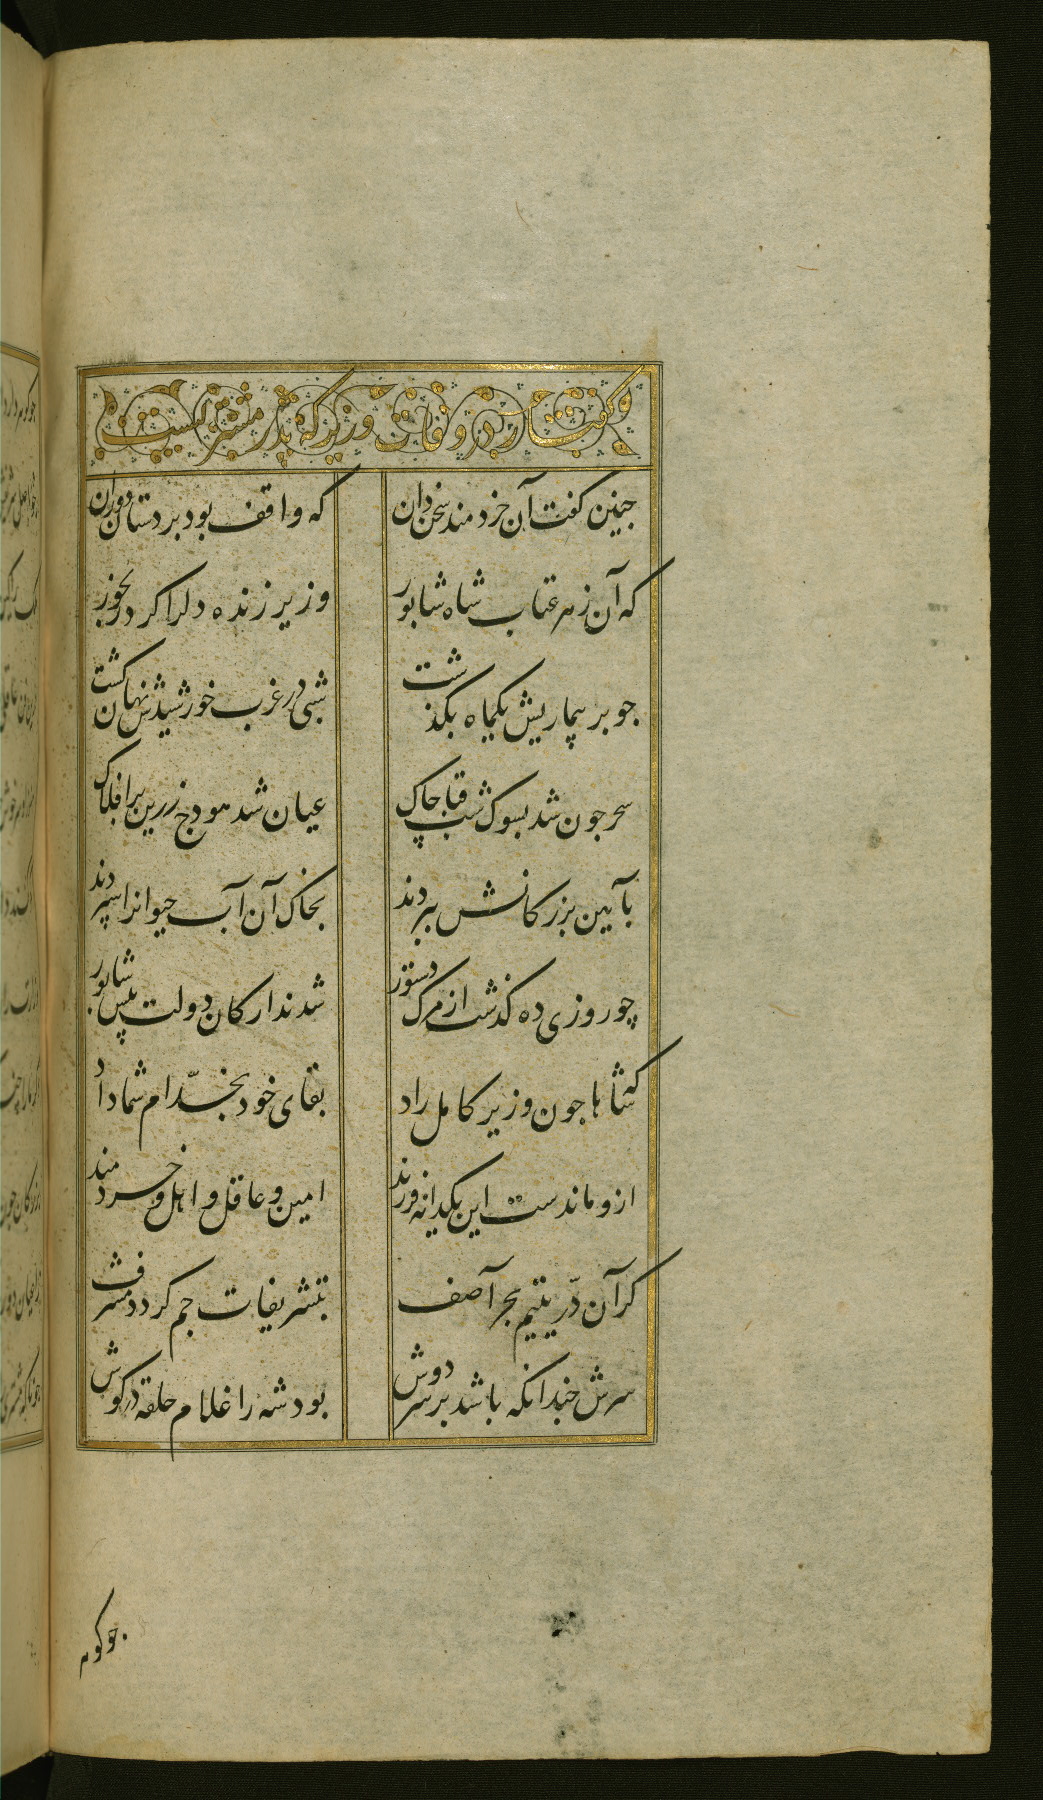 گفتار در وفات وزیر که پدر مشتریست
جنین کفت آن خردمند سخن دان
که واقف بود بر دستان دوران
که آن زهر عتاب شاه شابور
وزیر زنده دلرا کرد رنجور
جو بر بیماریش یکماه بکذشت
شبی در غرب خورشیدش نهان کشت
سحر جون شد بسوک شب قبا جاک
عیان شد هودج زرین بر افلاک
بآیین بزرکانش ببردند
بخاک آن آب حیوانرا سپردند
چو روزی ده کذشت از مرک دستور
شدند ارکان دولت پیش شابور
که شاها جون وزیر کامل راد
بقای خود بخدّام شما داد
ازو ماندست این یکدانه فرزند
امین و عاقل و اهل و خردمند
کر آن درّ یتیم بحر آصف
بتشریفات جم کردد مشرف
سرش جندانکه باشد بر سر دوش
بود شه را غلام حلقه در کوش
جو کوهر